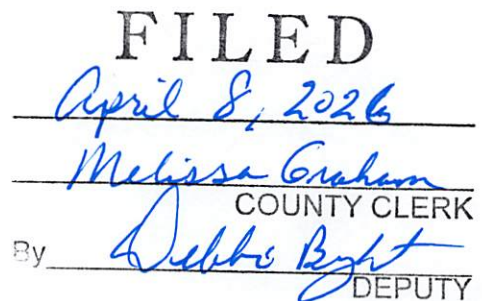 FILED
April 8, 2026
Melissa Graham
COUNTY CLERK
By Debbi
DEPUTY